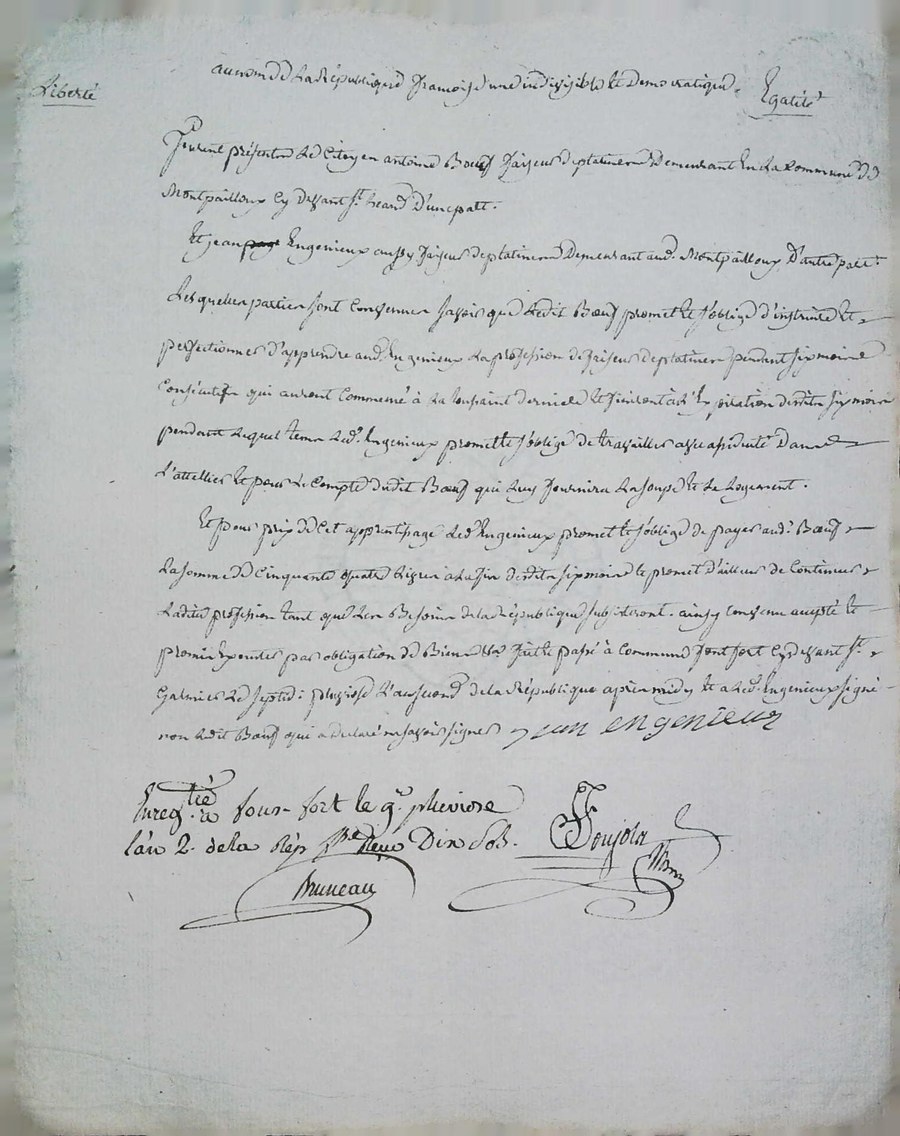 Liberté
au nom de La République françoise une indivisible et Democratique.
Egalité
Furent présents Le Citoyen antoine Bœuf faiseur de platines Demeurant En La Commune de
Montpailloux Cy devant St. heand D'une patt.
Et jean Engenieux aussy faiseur de platines Demeurant aud. Montpailloux D'autre patt.
Lesquelles parties sont Convenues savoir que Ledit Bœuf promet et s'oblige d'instruire et
perfectionner d'apprendre aud. Engenieux La profession de faiseur de platines pendant six mois
Consécutifs qui auront Commencé à La toussaint derniere et finiront à L'Expiration desdits six mois
pendant Lequel tems Led. Engenieux promet et s'oblige de travailler avec assiduité Dans
L'attellier et pour Le Compte dudit Bœuf qui Luy fournira La soupe et Le Logement.
Et pour prix de Cet apprentissage Led. Engenieux promet et s'oblige de payer aud. Bœuf
La somme de Cinquante quatre Livres à La fin desdits six mois et promet d'ailleurs de Continuer
Ladite profession tant que Les Besoins de la République subsisteront. ainsy Convenu accepté et
promis Executer par obligation de Biens fait et passé à Commune fontfort Cy devant St.
Galmier Le septidi pluviose L'an second de la République après midy et a Led. Engenieux signé
non Ledit Bœuf qui a declaré ne savoir signer jean engenieux
Enregtré a fons-fort le 9e. pluviose
l'an 2. de la Rép Reçu Dix sols.
Bruneau